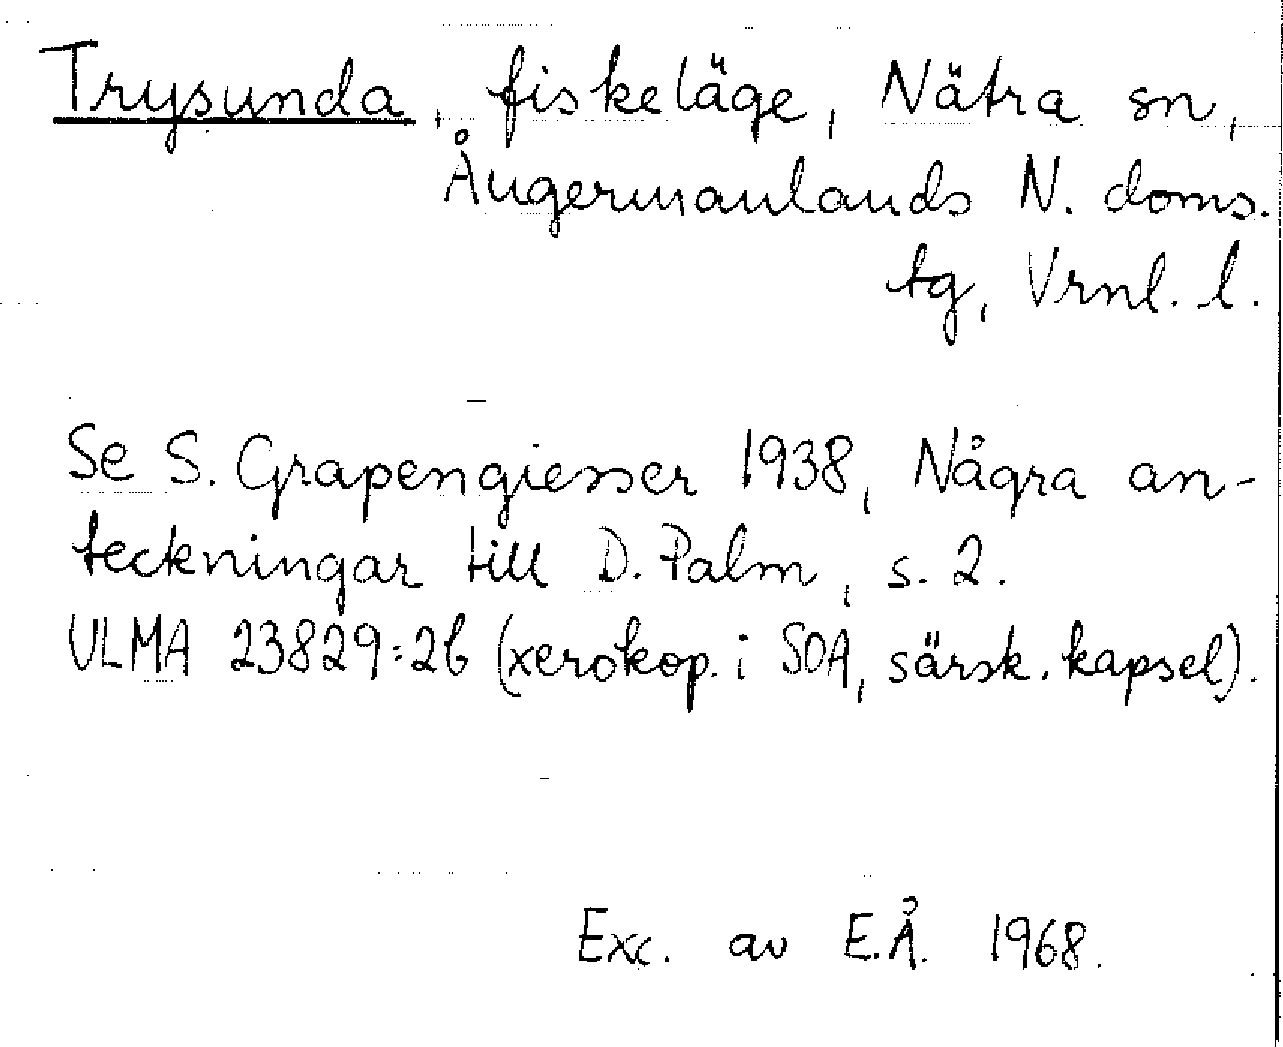 Trysunda, fiskeläge, Nätra sn,
Ångermanlands N. doms.
tg, Vrnl. l.
Se S. Grapengiesser 1938, Några an-
teckningar till D. Palm, s. 2.
ULMA 23829:26 (xerokop. i SOA, särsk. kapsel).
Exc. av E.Å. 1968.